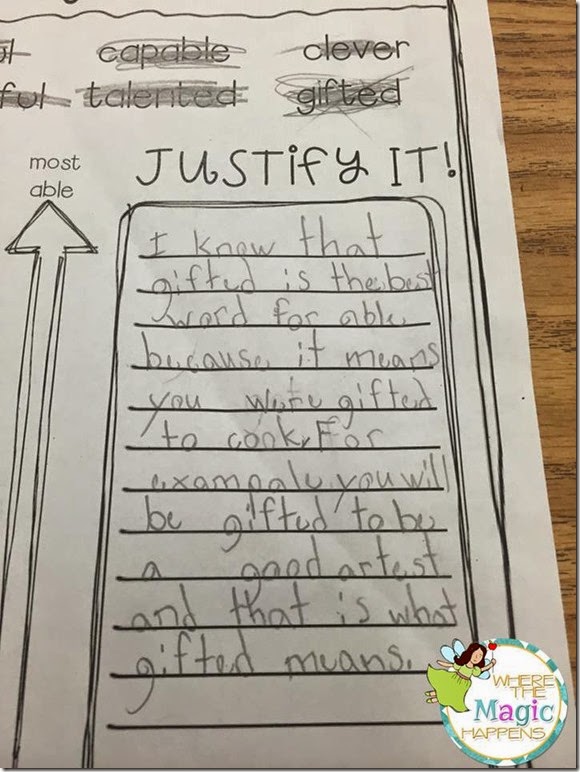 ul capable clever
ful talented gifted
most
able
JUSTIFY IT!
I know that
gifted is the best
word for able
because it means
you were gifted
to cook. For
exampale you will
be gifted to be
a good artest
and that is what
gifted means.
WHERE
THE
Magic
HAPPENS